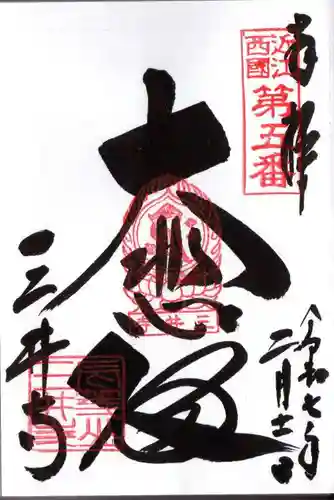 奉拝
近江
西國
第五番
大悲殿
三井寺
令和七年
二月十一日
三井寺